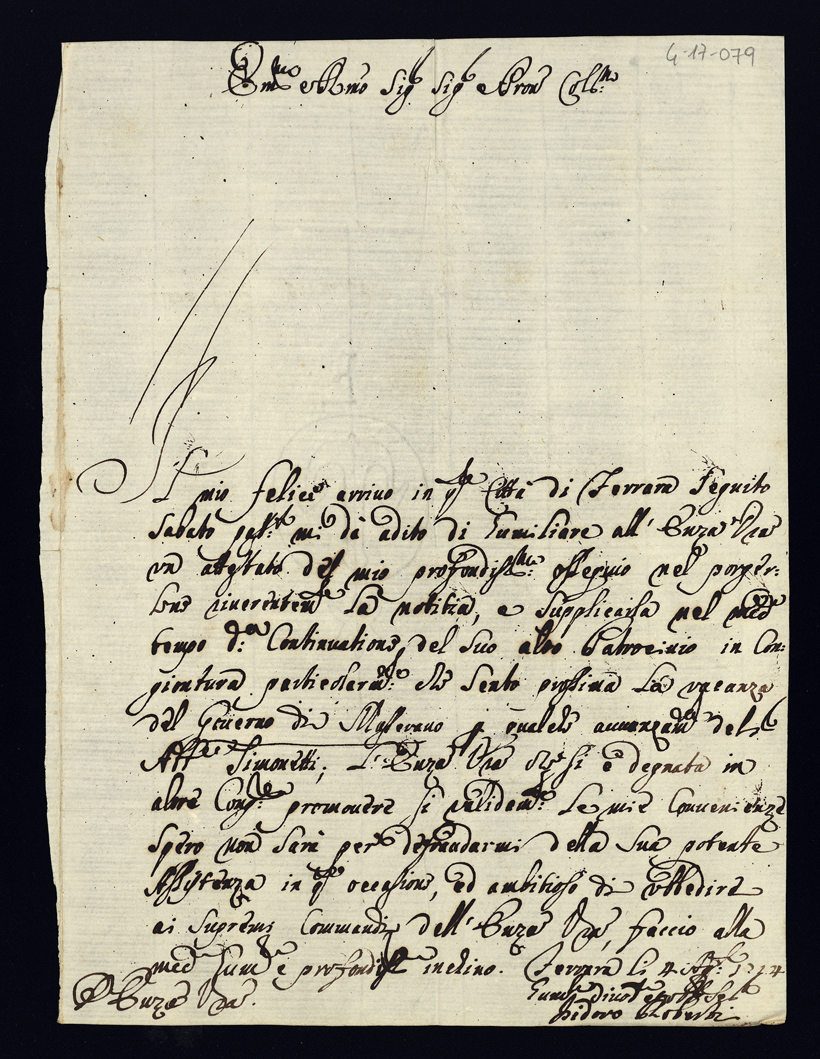 G-17-079
Em.mo e Rmo Sig.r Sig.r e Pron Col.mo
Il mio felice arrivo in q.ta Città di Ferrara seguito
Sabato pass.to mi dà adito di humiliare all' Emza V.ra
un attestato del mio profondiss.mo ossequio nel porger-
lene riverentem.te la notitia, e supplicarla nel med.mo
tempo d.la continuatione del suo alto Patrocinio in Con-
giontura particolarm.te che sento prossima la vacanza
del Governo di Masserano p qualche avvanzam.to del S.r
Abb.e Simonetti; L'Emza V.ra che si è degnata in
altre Cong.re promovere sì validam.te le mie Convenienze
spero non sarà per defraudarmi della sua potente
Assistenza in q.ta occasione, ed ambitioso di ubbedire
ai supremi Commandi dell' Emza V.ra, faccio alla
med.ma hum.ma e profondiss.ma inchino. Ferrara li 4
D. Emza V.ra.
Hum.mo divot.mo
Isidoro Roberti